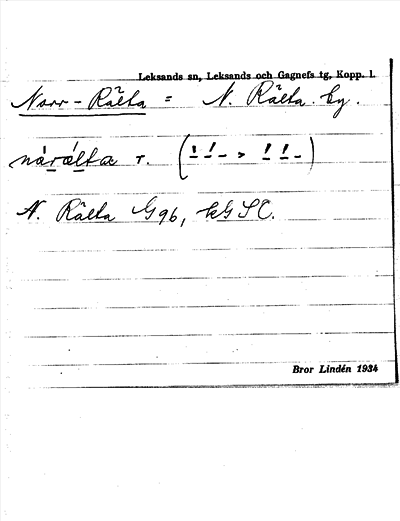 Leksands sn, Leksands och Gagnefs tg, Kopp. l.
Norr-Rälta = N. Rälta by.
nårälta r. (
N. Rälta G 96, kG SC.
Bror Lindén 1934